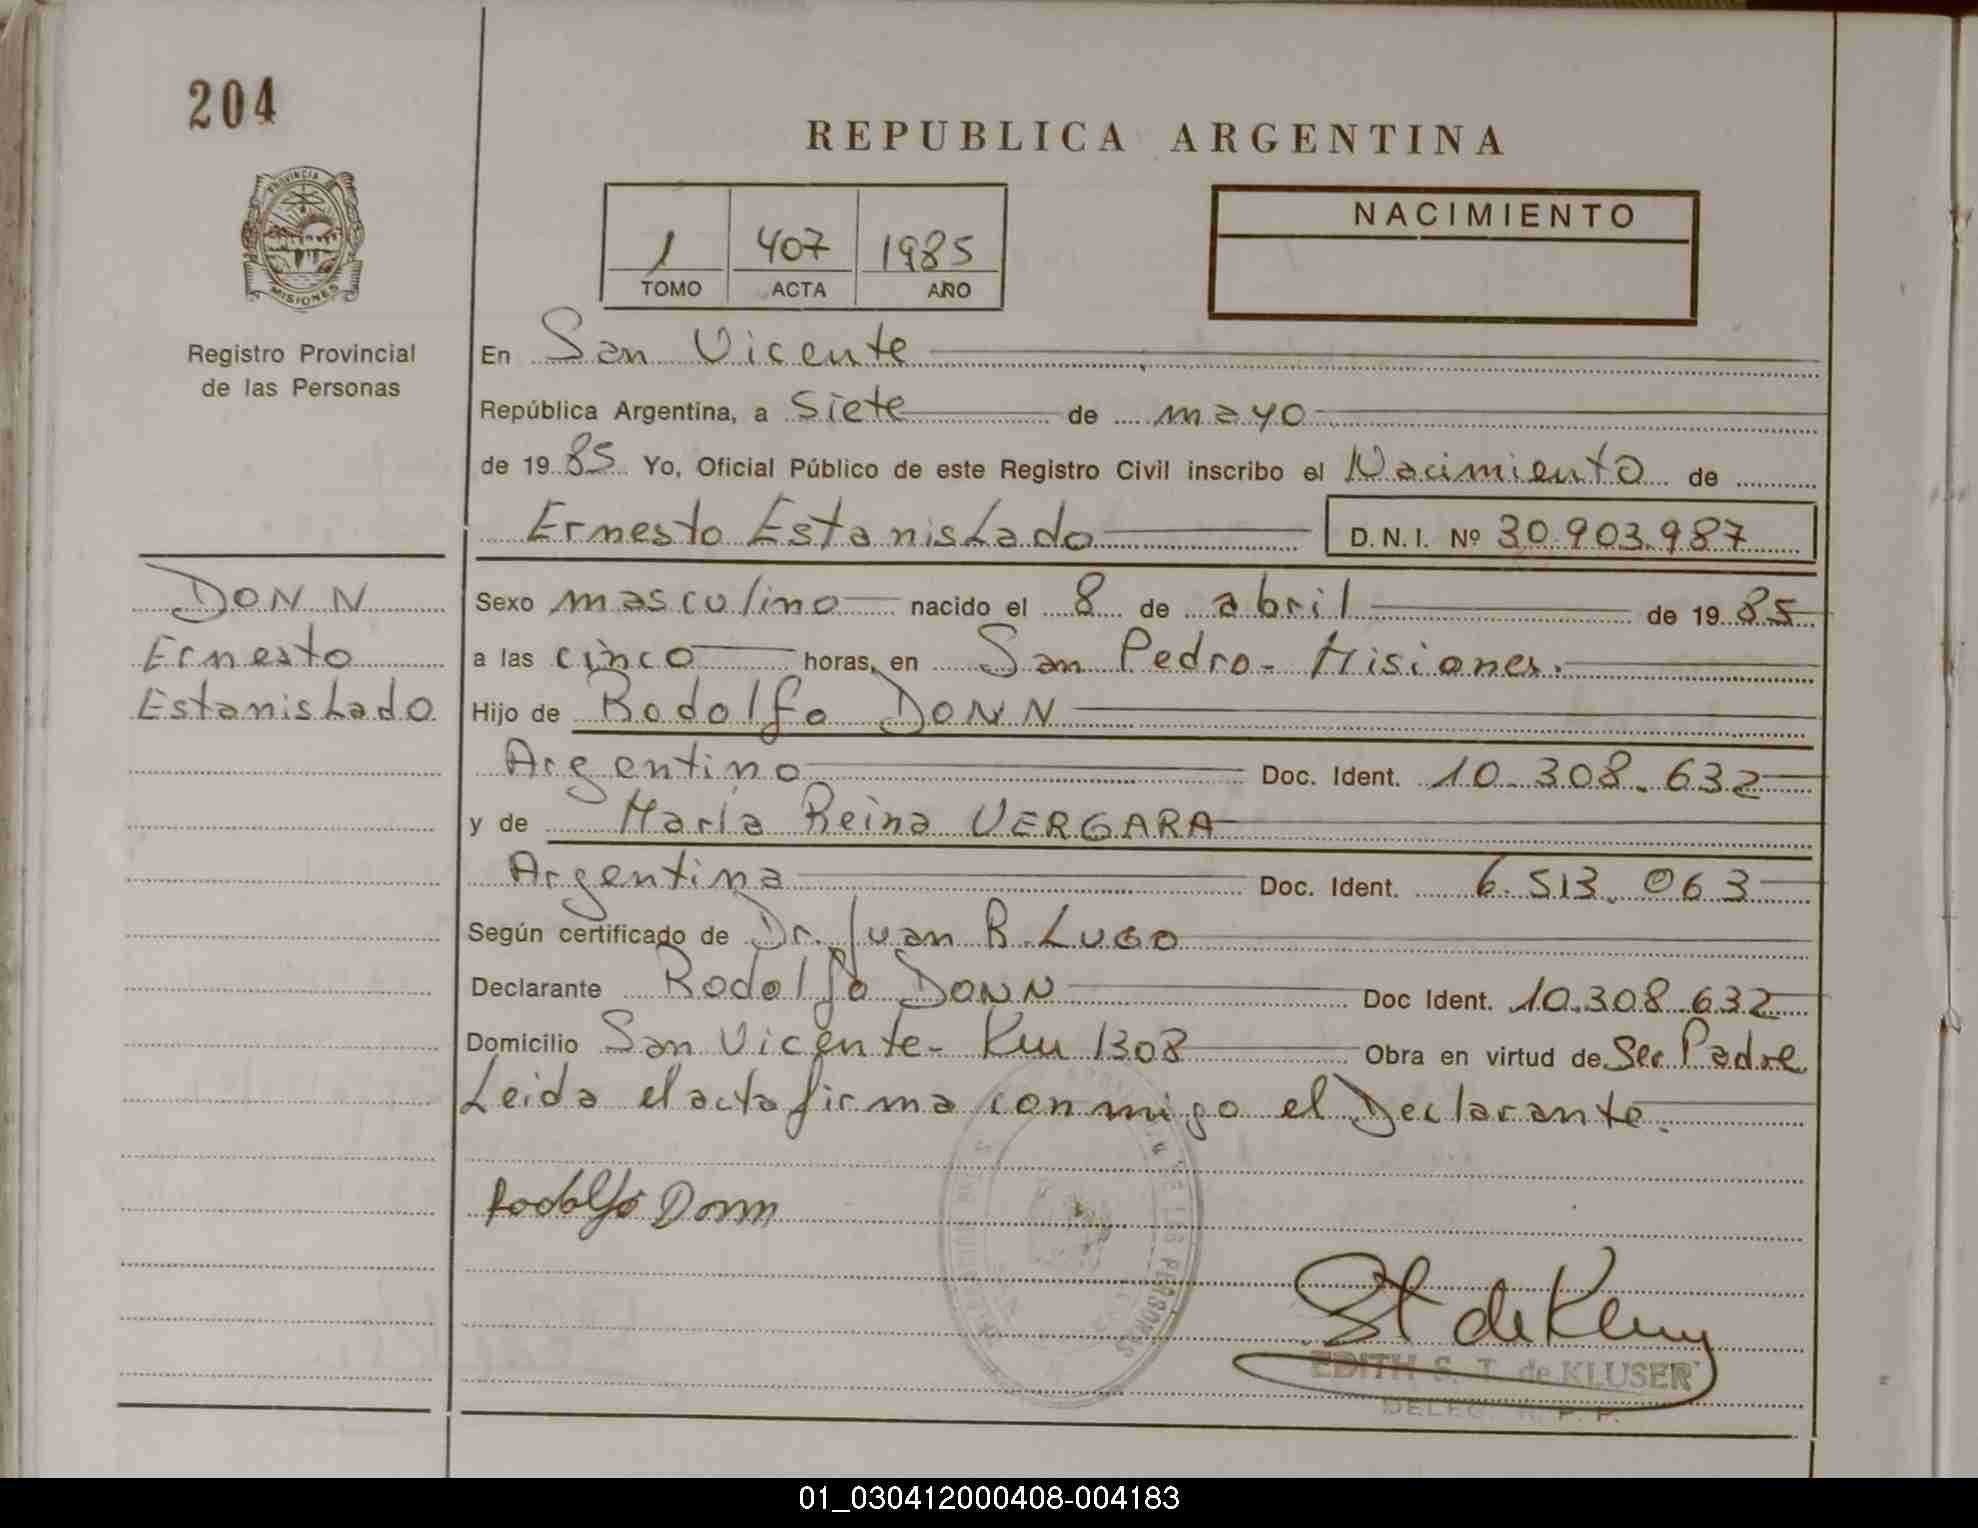 204
REPUBLICA ARGENTINA
PROVINCIA
MISIONES
Registro Provincial
de las Personas
1 407 1985
TOMO ACTA AÑO
NACIMIENTO
En San Vicente
República Argentina, a Siete de mayo
de 19 85 Yo, Oficial Público de este Registro Civil inscribo el Nacimiento de
Ernesto Estanislado D.N.I. Nº 30.903.987
DONN
Ernesto
Estanislado
Sexo masculino nacido el 8 de abril de 19 85
a las cinco horas, en San Pedro - Misiones.
Hijo de Rodolfo DONN
Argentino Doc. Ident. 10.308.632
y de María Reina VERGARA
Argentina Doc. Ident. 6.513.063
Según certificado de Dr. Juan R. LUGO
Declarante Rodolfo DONN Doc Ident. 10.308.632
Domicilio San Vicente - Km 1308 Obra en virtud de Ser Padre
Leida el acta firma conmigo el Declarante.
Rodolfo Donn
DE LAS PERSONAS
EDITH S. T. de KLUSER
DELEG. R. P. P.
01_030412000408-004183